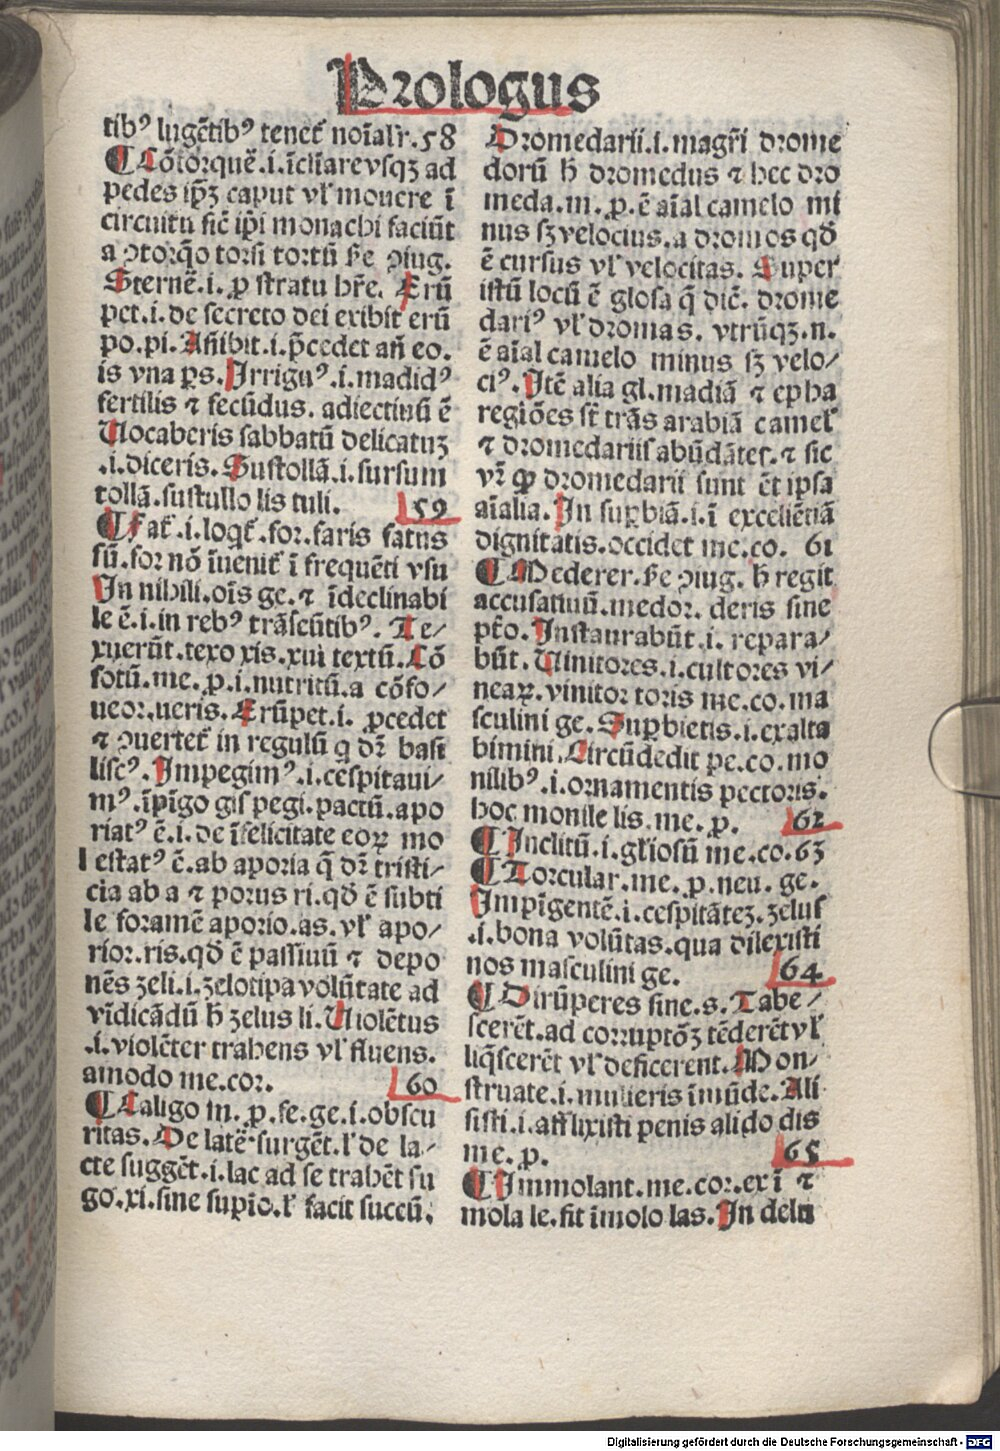 Prologus
tibꝰ lugẽtibꝰ tenet᷑ noĩalr̃.58
¶ Cõtorquẽ.i.ĩcliare vsqꝫ ad
pedes ip̃ꝫ caput vl̓ mouere ĩ
circuitu ſic̃ ip̃i monachi faciũt
a ꝯtorq̃o torſi tortũ ẜe ꝯiug.
Sternẽ.i.ꝑ ſtratu hr̃e. Erũ
pet.i.de ſecreto dei exibit erũ
po.pi. Añibit.i.p̃cedet añ eo.
is vna ꝑs. Irriguꝰ.i.madidꝰ
fertilis ⁊ fecũdus. adiectiuũ ẽ
Uocaberis ſabbatũ delicatuꝫ
.i.diceris. Suſtollã.i.ſurſum
tollã.ſuſtullo lis tuli. 59
¶ Fat᷑.i.loqt᷑.for.faris fatus
ſũ.for nõ ĩuenit᷑ ĩ frequẽti vſu
In nihili.oĩs ge.⁊ ĩdeclinabi
le ẽ.i.in rebꝰ trãſeũtibꝰ. Te⸗
xuerũt.texo xis.xui textũ. Cõ
fotũ.me.ꝓ.i.nutritũ.a cõfo⸗
ueor.ueris. Erũpet.i.ꝓcedet
⁊ ꝯuertet᷑ in regulũ q dr̃ baſi
liſcꝰ. Impegimꝰ.i.ceſpitaui⸗
mꝰ.ĩpĩgo gis pegi.pactũ.apo
riatꝰ ẽ.i.de ĩfelicitate eoꝝ mo
leſtatꝰ ẽ.ab aporia q̃ dr̃ triſti⸗
cia ab a ⁊ porus ri.qd̃ ẽ ſubti
le foramẽ aporio.as.vl̓ apo⸗
rior.ris.qd̃ ẽ paſſiuũ ⁊ depo
nẽs zeli.i.zelotipa volũtate ad
vĩdicãdũ h̃ zelus li. Uiolẽtus
.i.violẽter trahens vl̓ fluens.
amodo me.cor. 60
¶ Caligo m.ꝓ.fe.ge.i.obſcu
ritas. De latẽ ſurgẽt.l̓ de la⸗
cte ſuggẽt.i.lac ad ſe trahẽt ſu
go.xi.ſine ſupĩo.l̓ facit ſuccũ.
Dromedarii.i.magr̃i drome
dorũ h̃ dromedus ⁊ hec dro
meda.m.ꝓ.ẽ aĩal camelo mi
nus ſꝫ velocius.a dromos qd̃
ẽ curſus vl̓ velocitas. Super
iſtũ locũ ẽ gloſa q̃ dic̃. drome
dariꝰ vl̓ dromas. vtrũqꝫ.n.
ẽ aĩal camelo minus ſꝫ velo⸗
ciꝰ. Itẽ alia gl.madiã ⁊ epha
regiões ſt̃ trãs arabiã camel̓
⁊ dromedariiſ abũdãtes.⁊ ſic
vr̃ ꝙ dromedarii ſunt ẽt ipſa
aĩalia. In ſuꝑbiã.i.ĩ excellẽtiã
dignitatis.occidet me.co. 61
¶ Mederer.ẜe ꝯiug. h̃ regit
accuſatiuũ.medor. deris ſine
pt̃o. Inſtaurabũt.i. repara⸗
bũt. Uinitores.i.cultores vi⸗
neaꝝ.vinitor toris me.co.ma
ſculini ge. Suꝑbietis.i.exalta
bimini. Circũdedit pe.co.mo
nilibꝰ.i.ornamentis pectoris.
hoc monile lis.me.ꝓ. 62
¶ Inclitũ.i.gl̓ioſũ me.co.63
¶ Torcular.me.ꝓ.neu.ge.
Impĩgentẽ.i.ceſpitãteꝫ.zeluſ
.i.bona volũtas.qua dilexiſti
nos maſculini ge. 64
¶ Dirũperes ſine.s. Tabe⸗
ſcerẽt.ad corruptõꝫ tẽderẽt vl̓
liq̃ſcerẽt vl̓ deficerent. Mon⸗
ſtruate.i.mulieris ĩmũde. Ali
ſiſti.i.afflixiſti penis alido dis
me.ꝓ. 65
¶ Immolant.me.cor.ex ĩ ⁊
mola le.fit ĩmolo las. In delu
Digitalisierung gefördert durch die Deutsche Forschungsgemeinschaft - DFG